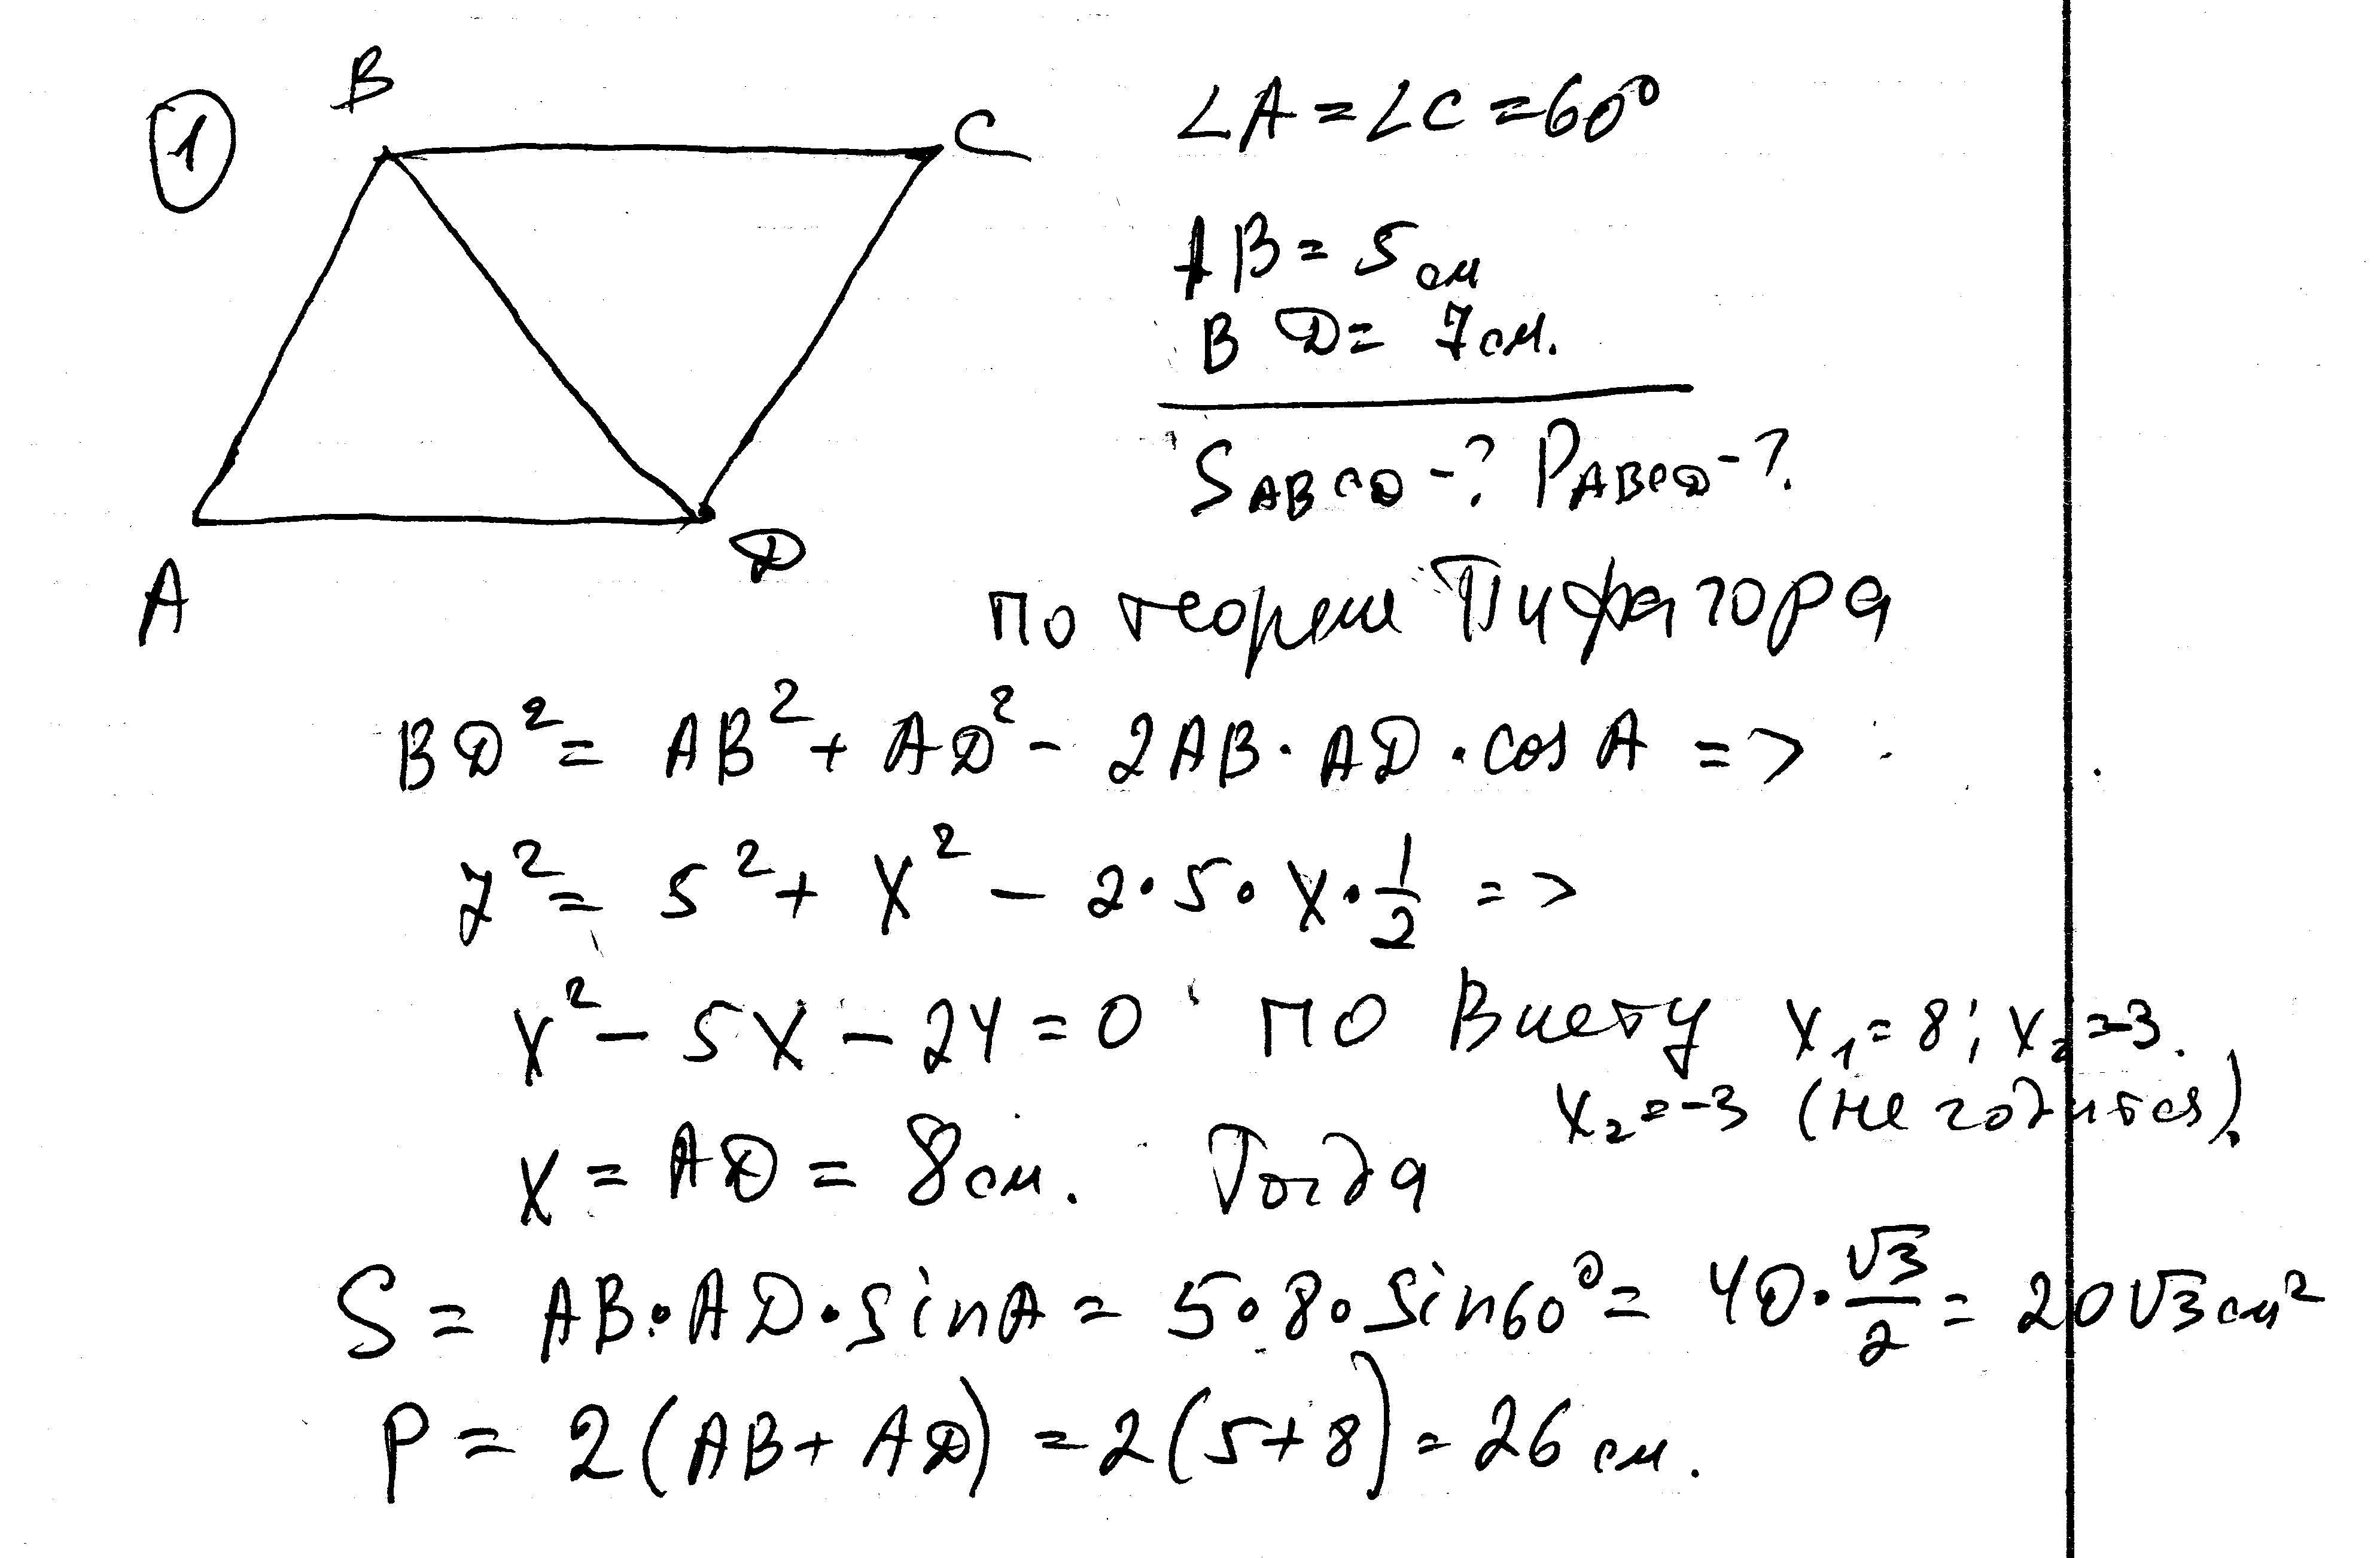 1
B
C
A
D
∠A = ∠C = 60°
AB = 5 см
BD = 7 см.
S ABCD - ? P ABCD - ?
по теореме Пифагора
BD² = AB² + AD² - 2AB · AD · cos A =>
7² = 5² + x² - 2 · 5 · x · 1/2 =>
x² - 5x - 24 = 0 по Виету x₁ = 8; x₂ = -3.
x₂ = -3 (не годится).
x = AD = 8 см. Тогда
S = AB · AD · sin A = 5 · 8 · sin 60° = 40 · √3/2 = 20√3 см²
P = 2(AB + AD) = 2(5 + 8) = 26 см.